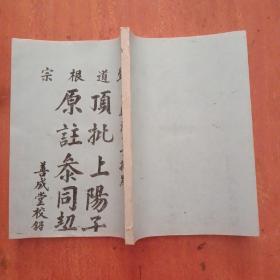 道根宗
頂批上陽子
原註叅同契
善成堂校錄